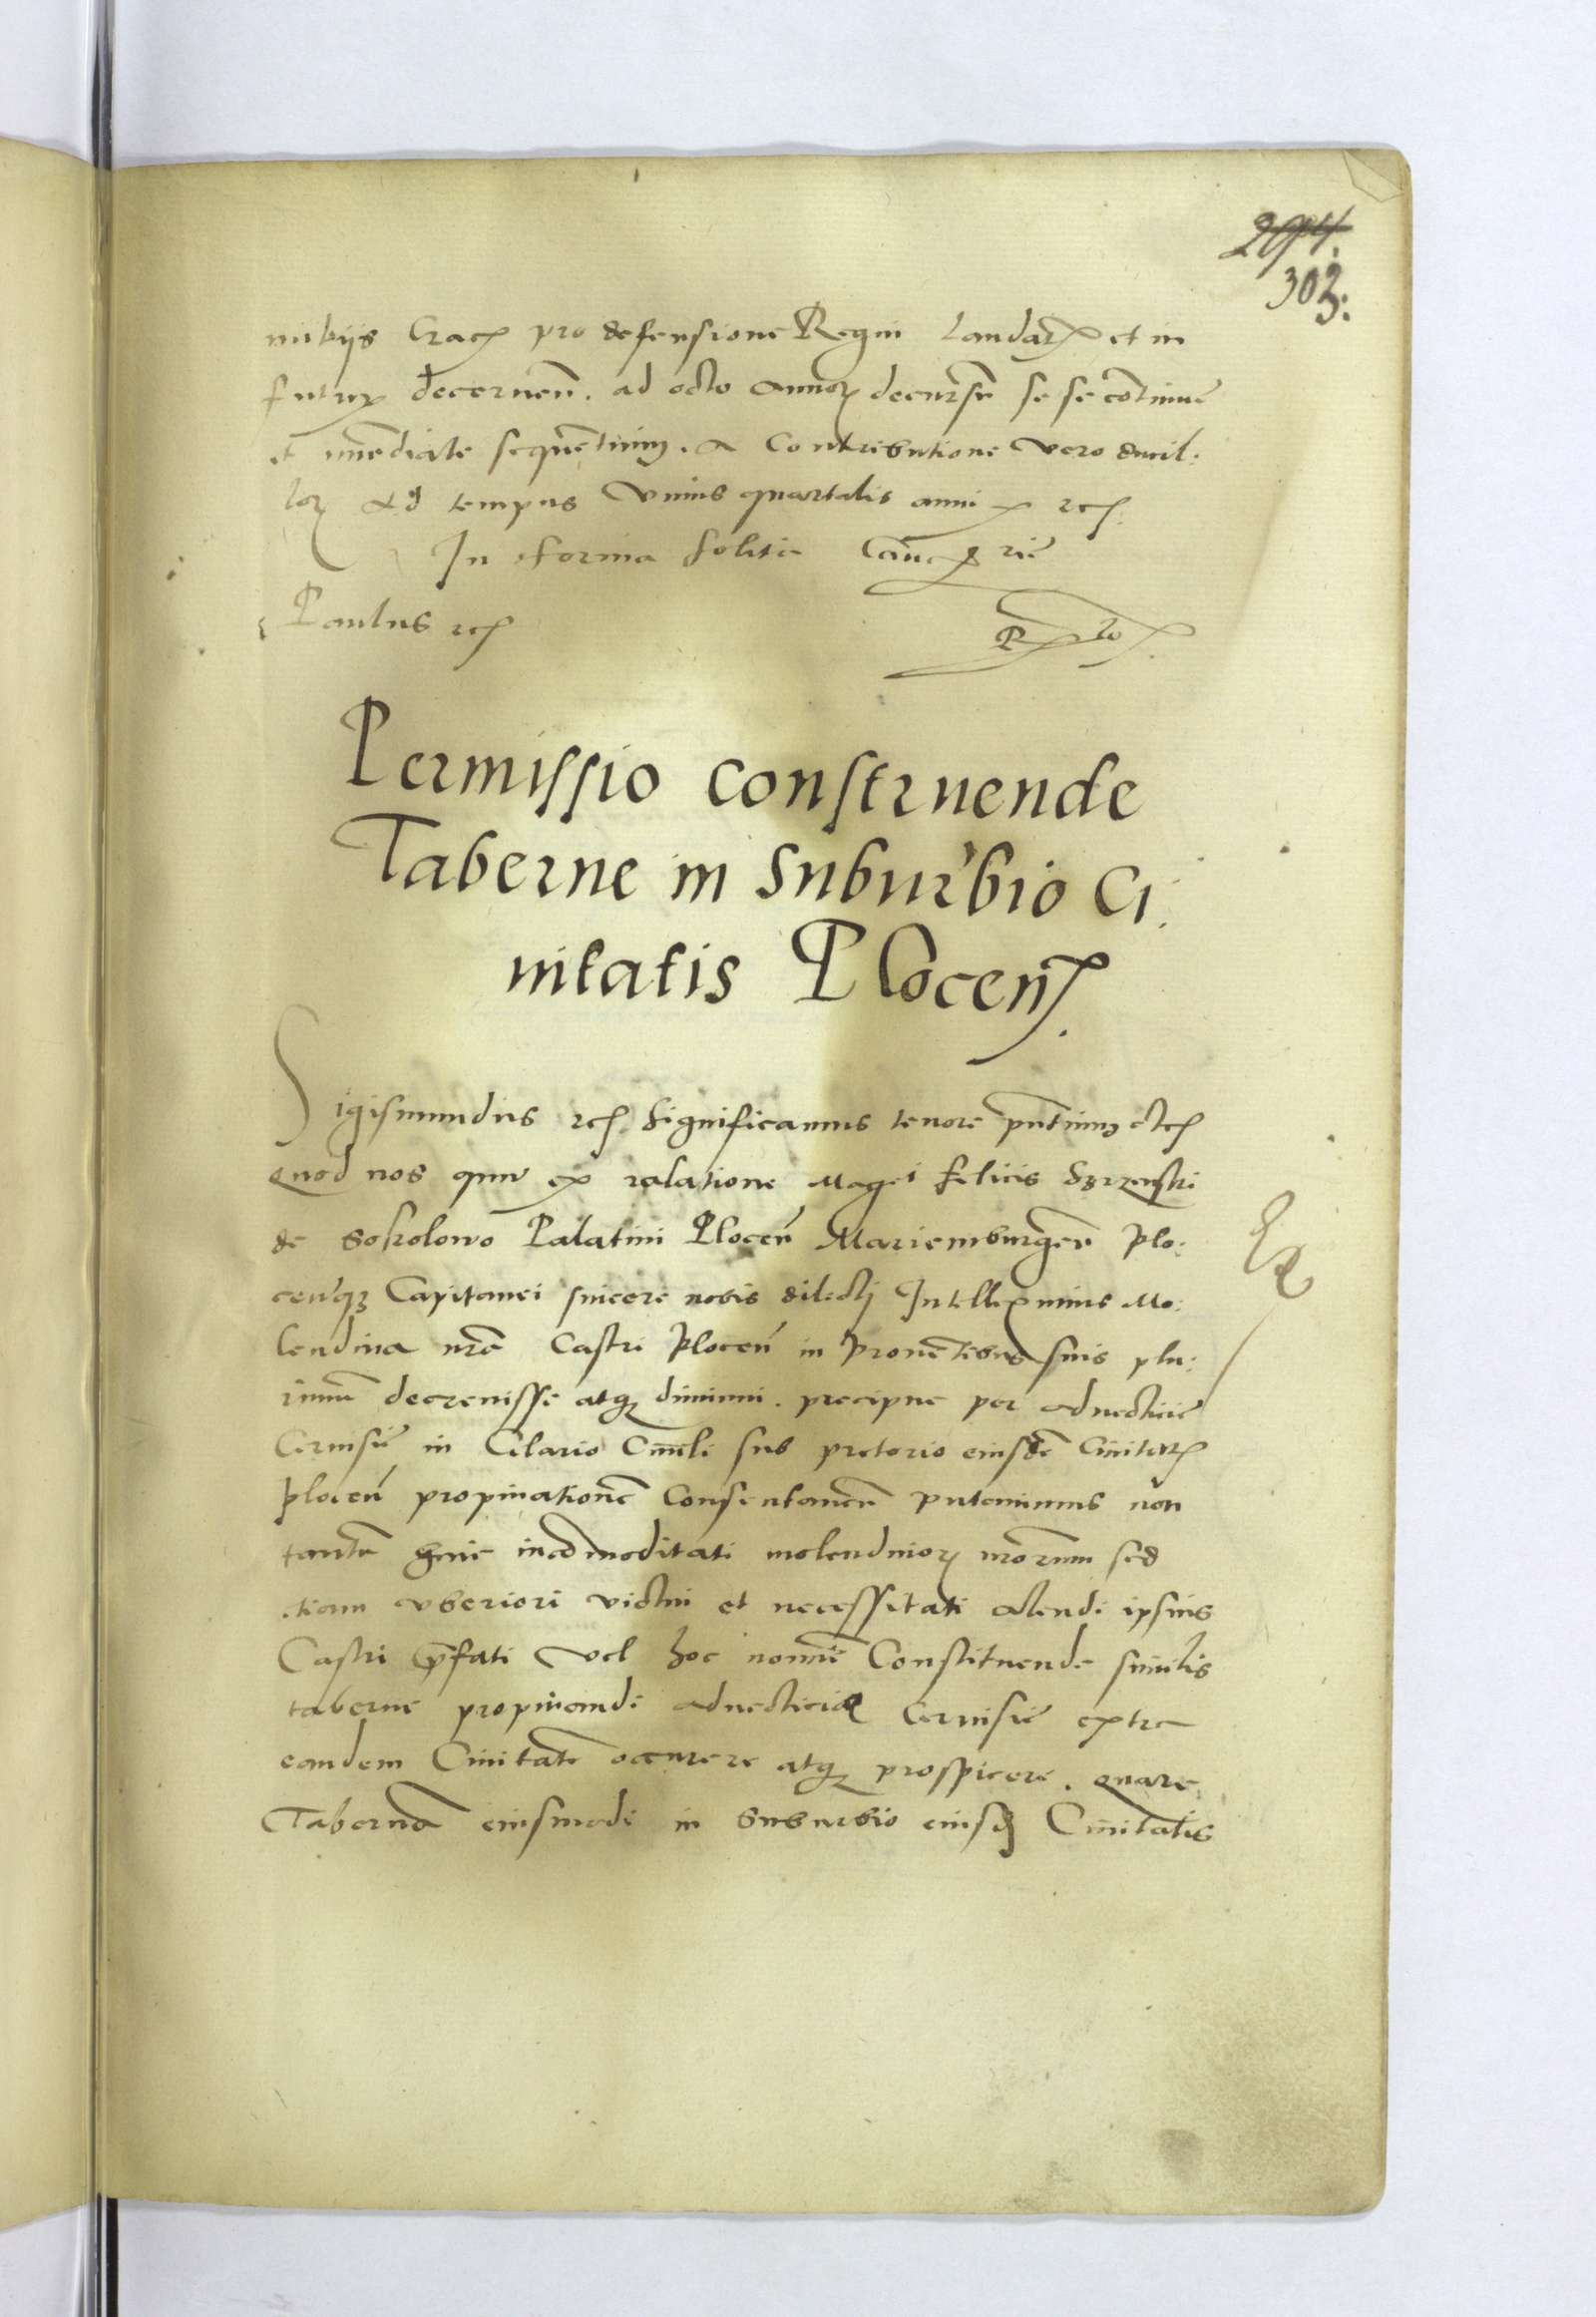 294.
303.
mitijs Crac pro defensione Regni laudat et in
futur decernen. ad octo annor decursu se se cotinue
et imediate sequetium. A Contributione vero ducil:
lor ad tempus vnius quartalis anni rc.
In forma solita Canc rie
Paulus rc
Permissio construende
Taberne in Suburbio Ci:
uitatis Plocen.
Sigismundus rc. Significamus tenore pntium etc
Quod nos qum ex ralatione Magci felicis Srzenski
de Sokolowo Palatini Plocen Mariemburgen Plo:
cenq Capitanei sincere nobis dilecti Intelleximus Mo:
lendina nra Castri Plocen in prouentibus suis plu:
rimu decreuisse atq diminui. precipue per aduecticie
Ceruisie in Celario Ciuili sub pretorio eiusde Ciuitat
plocen propinatione Consentaneu putauimus non
tantu huic incomoditati molendinor nrorum sed
etiam vberiori victui et necessitati alendi ipsius
Castri pfati vel hoc nomine Constituende similis
taberne propinandi aduecticie Ceruisie extra
eandem Ciuitate occurrere atq prospicere. quare
Taberna eiusmodi in Suburbio eiusd Ciuitatis